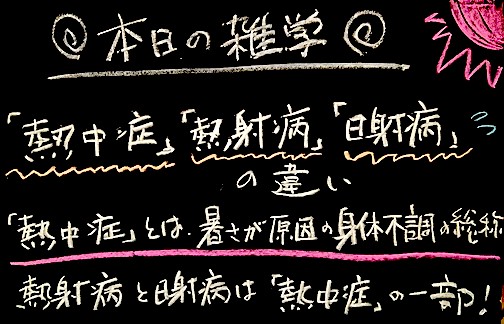 本日の雑学
「熱中症」「熱射病」「日射病」
の違い
「熱中症」とは、暑さが原因の身体不調の総称
熱射病と日射病は「熱中症」の一部!